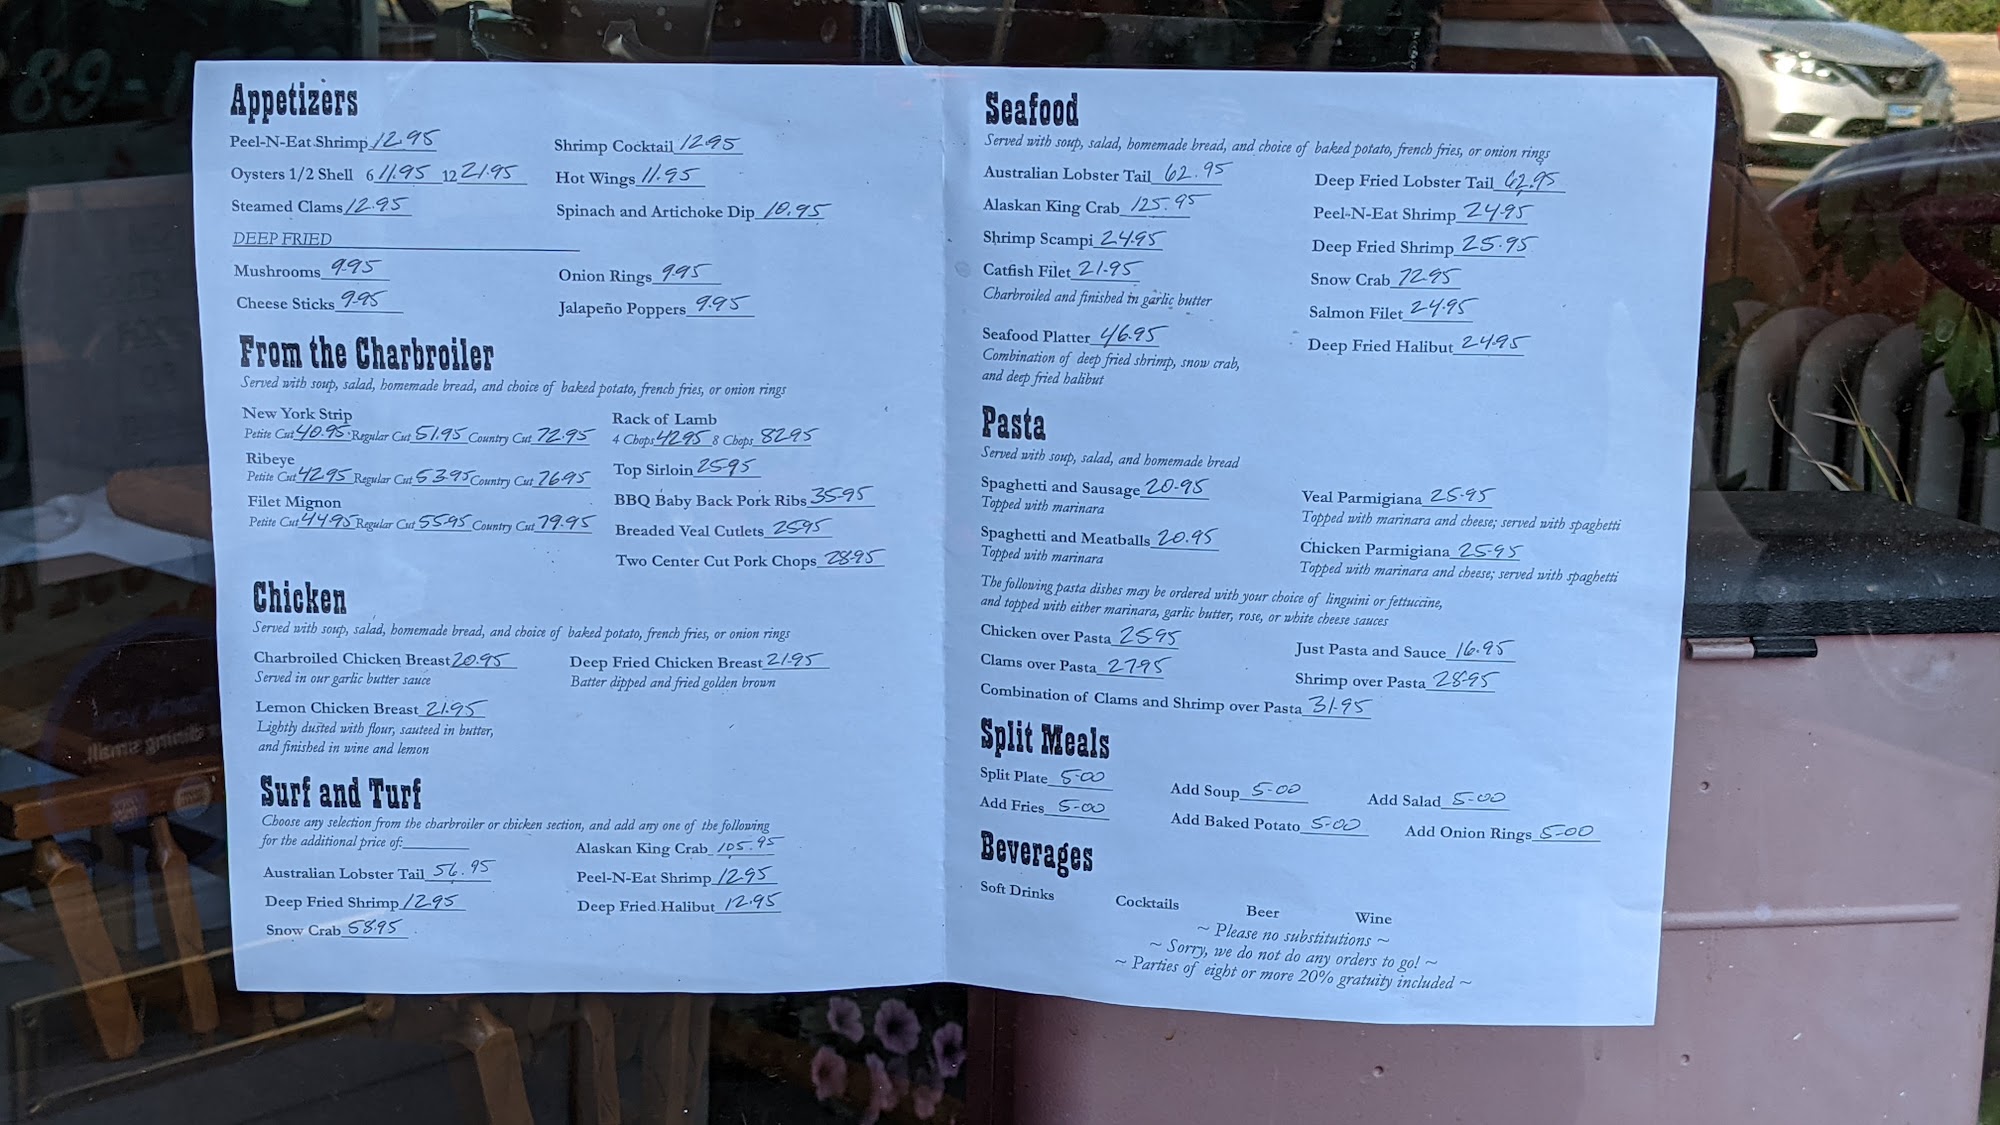 Appetizers
Peel-N-Eat Shrimp 12.95
Oysters 1/2 Shell 6 11.95 12 21.95
Steamed Clams 12.95
Shrimp Cocktail 12.95
Hot Wings 11.95
Spinach and Artichoke Dip 10.95
DEEP FRIED
Mushrooms 9.95
Cheese Sticks 9.95
Onion Rings 9.95
Jalapeño Poppers 9.95
From the Charbroiler
Served with soup, salad, homemade bread, and choice of baked potato, french fries, or onion rings
New York Strip
Petite Cut 40.95 Regular Cut 51.95 Country Cut 72.95
Ribeye
Petite Cut 42.95 Regular Cut 53.95 Country Cut 76.95
Filet Mignon
Petite Cut 44.95 Regular Cut 55.95 Country Cut 79.95
Rack of Lamb
4 Chops 42.95 8 Chops 82.95
Top Sirloin 25.95
BBQ Baby Back Pork Ribs 35.95
Breaded Veal Cutlets 25.95
Two Center Cut Pork Chops 28.95
Chicken
Served with soup, salad, homemade bread, and choice of baked potato, french fries, or onion rings
Charbroiled Chicken Breast 20.95
Served in our garlic butter sauce
Deep Fried Chicken Breast 21.95
Batter dipped and fried golden brown
Lemon Chicken Breast 21.95
Lightly dusted with flour, sauteed in butter,
and finished in wine and lemon
Surf and Turf
Choose any selection from the charbroiler or chicken section, and add any one of the following
for the additional price of:
Australian Lobster Tail 56.95
Deep Fried Shrimp 12.95
Snow Crab 58.95
Alaskan King Crab 105.95
Peel-N-Eat Shrimp 12.95
Deep Fried Halibut 12.95
Seafood
Served with soup, salad, homemade bread, and choice of baked potato, french fries, or onion rings
Australian Lobster Tail 62.95
Alaskan King Crab 125.95
Shrimp Scampi 24.95
Catfish Filet 21.95
Charbroiled and finished in garlic butter
Seafood Platter 46.95
Combination of deep fried shrimp, snow crab,
and deep fried halibut
Deep Fried Lobster Tail 62.95
Peel-N-Eat Shrimp 24.95
Deep Fried Shrimp 25.95
Snow Crab 72.95
Salmon Filet 24.95
Deep Fried Halibut 24.95
Pasta
Served with soup, salad, and homemade bread
Spaghetti and Sausage 20.95
Topped with marinara
Spaghetti and Meatballs 20.95
Topped with marinara
Veal Parmigiana 25.95
Topped with marinara and cheese; served with spaghetti
Chicken Parmigiana 25.95
Topped with marinara and cheese; served with spaghetti
The following pasta dishes may be ordered with your choice of linguini or fettuccine,
and topped with either marinara, garlic butter, rose, or white cheese sauces
Chicken over Pasta 25.95
Clams over Pasta 27.95
Just Pasta and Sauce 16.95
Shrimp over Pasta 28.95
Combination of Clams and Shrimp over Pasta 31.95
Split Meals
Split Plate 5.00
Add Soup 5.00
Add Salad 5.00
Add Fries 5.00
Add Baked Potato 5.00
Add Onion Rings 5.00
Beverages
Soft Drinks
Cocktails
Beer
Wine
~ Please no substitutions ~
~ Sorry, we do not do any orders to go! ~
~ Parties of eight or more 20% gratuity included ~